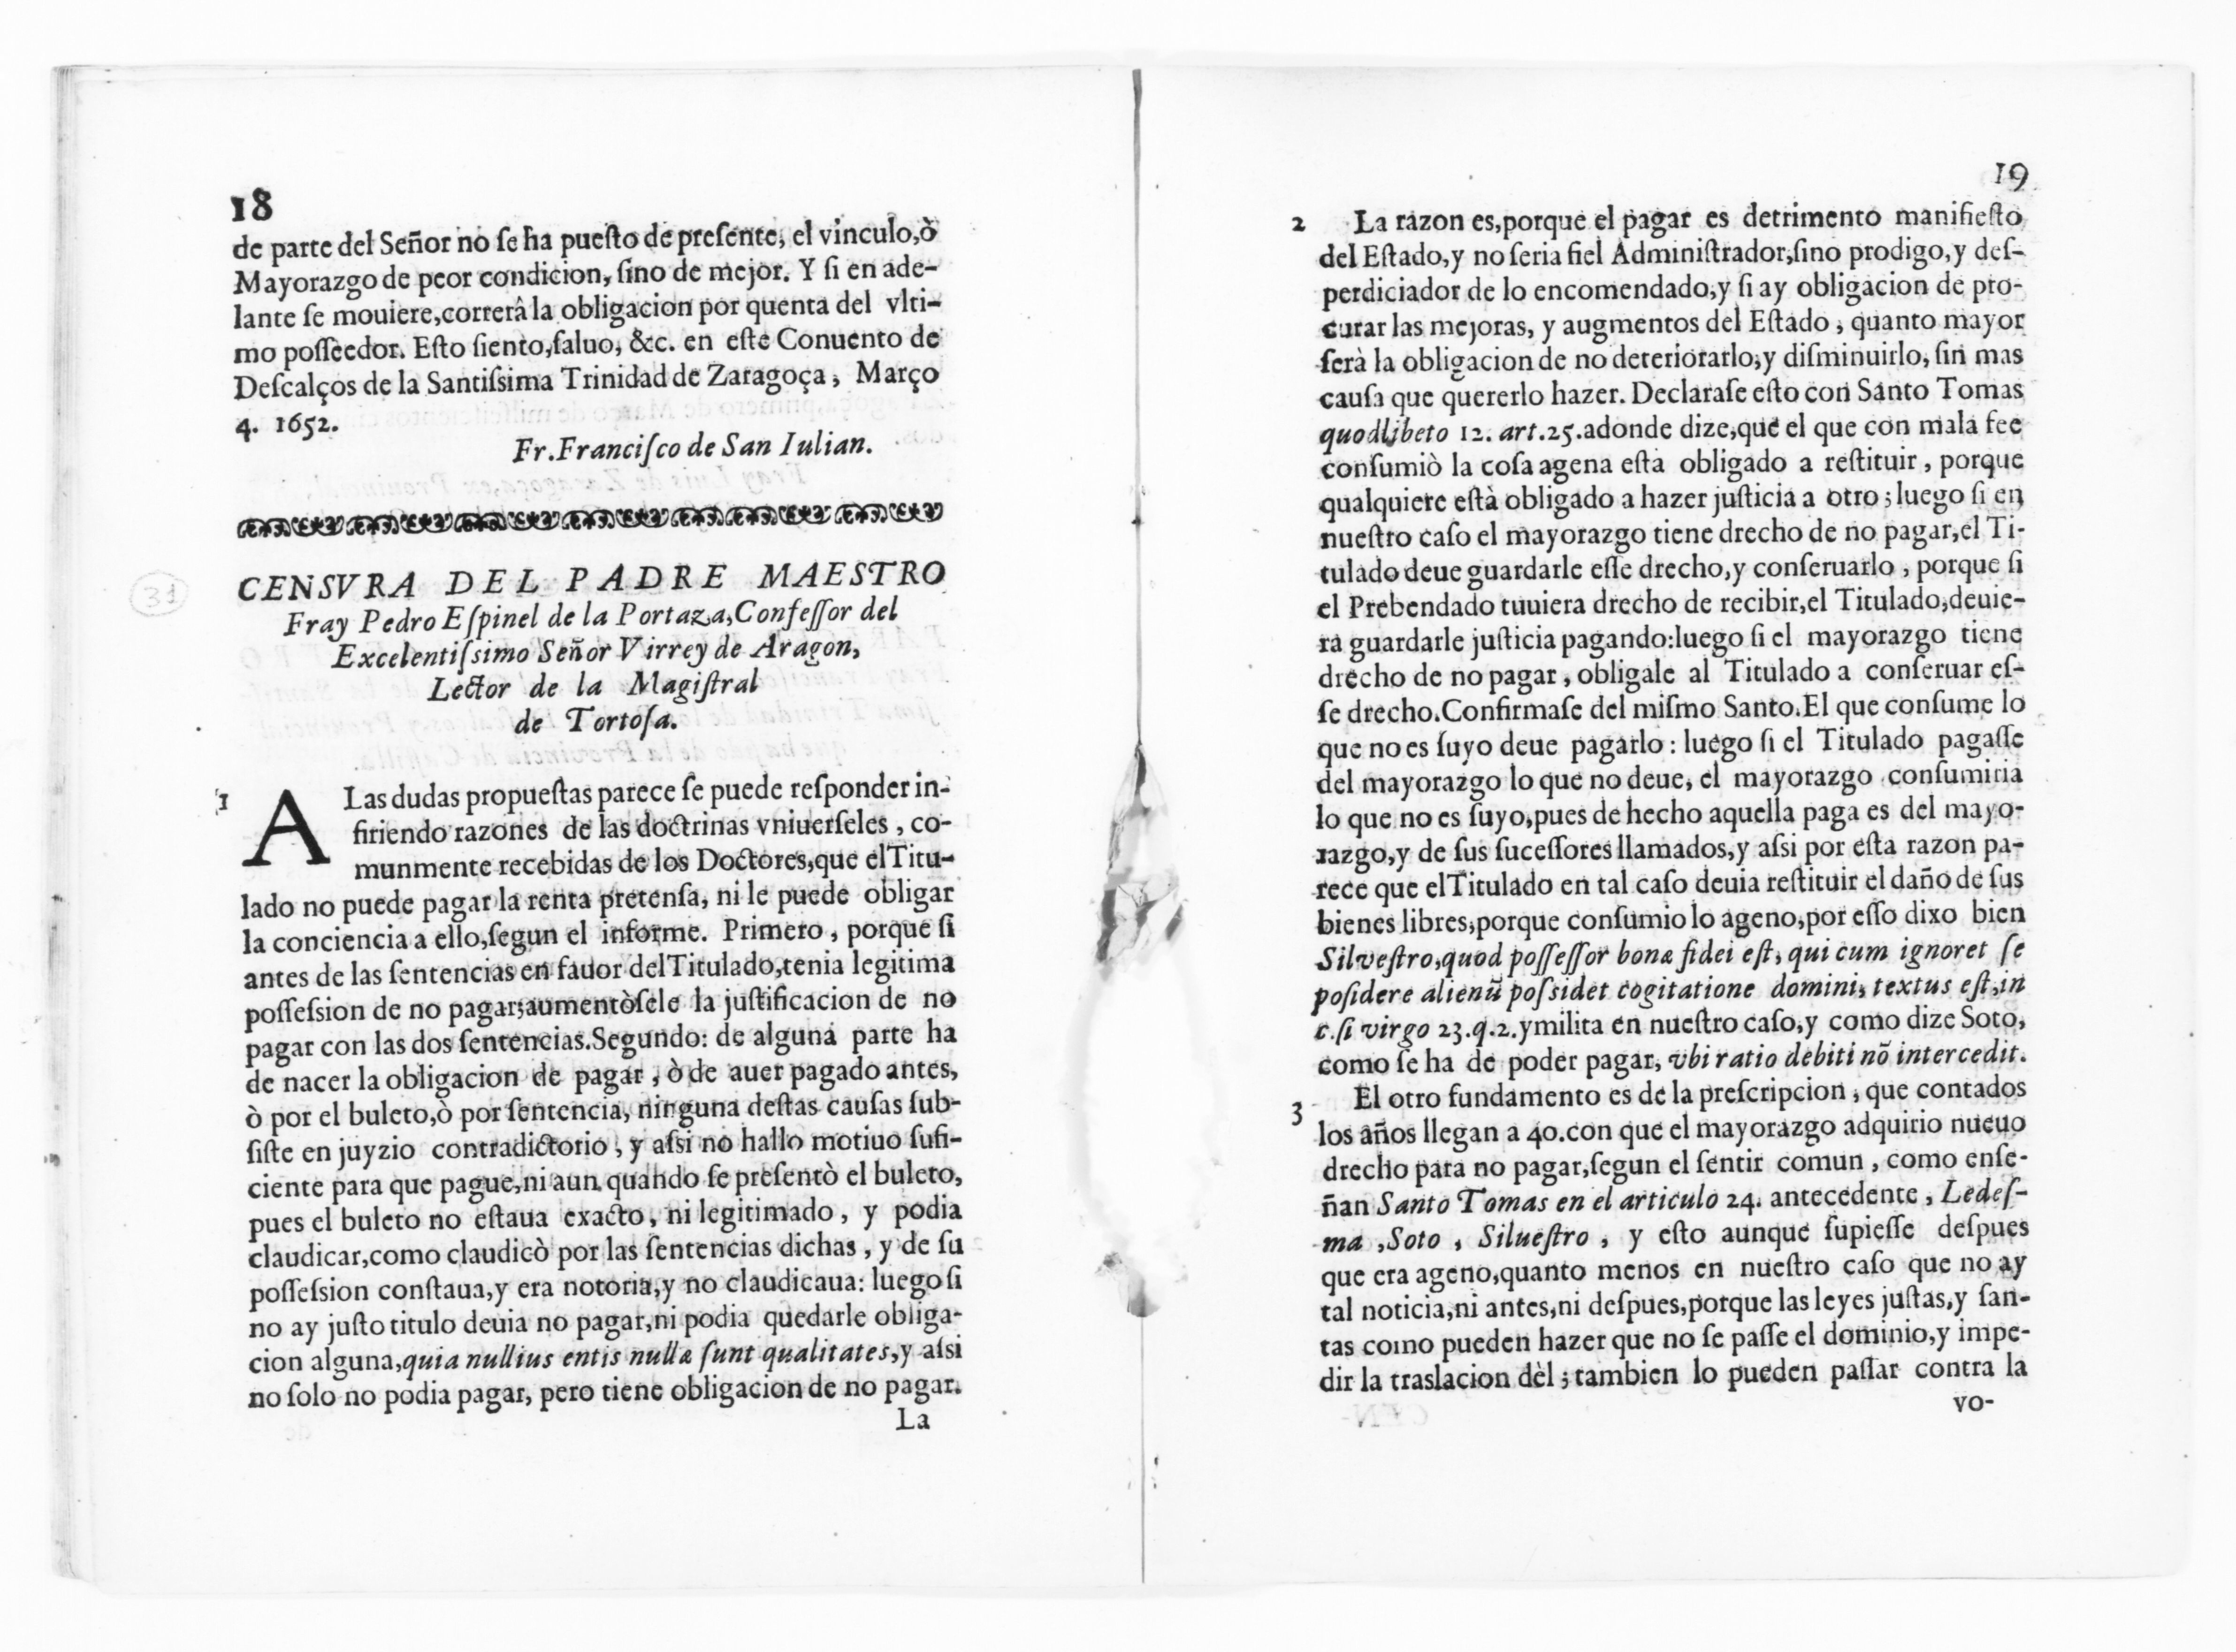 18
de parte del Señor no ſe ha pueſto de preſente, el vinculo,ò
Mayorazgo de peor condicion, ſino de mejor. Y ſi en ade-
lante ſe mouiere,correrâ la obligacion por quenta del vlti-
mo poſſeedor. Eſto ſiento,ſaluo, &c. en eſte Conuento de
Deſcalços de la Santiſsima Trinidad de Zaragoça, Março
4. 1652.
Fr.Franciſco de San Iulian.
31
CENSVRA DEL PADRE MAESTRO
Fray Pedro Eſpinel de la Portaza,Confeſſor del
Excelentiſsimo Señor Virrey de Aragon,
Lector de la Magiſtral
de Tortoſa.
1 A Las dudas propueſtas parece ſe puede reſponder in-
firiendo razones de las doctrinas vniuerſeles, co-
munmente recebidas de los Doctores,que el Titu-
lado no puede pagar la renta pretenſa, ni le puede obligar
la conciencia a ello,ſegun el informe. Primero, porque ſi
antes de las ſentencias en fauor del Titulado,tenia legitima
poſſeſsion de no pagar;aumentòſele la juſtificacion de no
pagar con las dos ſentencias.Segundo: de alguna parte ha
de nacer la obligacion de pagar, ò de auer pagado antes,
ò por el buleto,ò por ſentencia, ninguna deſtas cauſas ſub-
ſiſte en juyzio contradictorio, y aſsi no hallo motiuo ſufi-
ciente para que pague,ni aun quando ſe preſentò el buleto,
pues el buleto no eſtaua exacto, ni legitimado, y podia
claudicar,como claudicò por las ſentencias dichas, y de ſu
poſſeſsion conſtaua,y era notoria,y no claudicaua: luego ſi
no ay juſto titulo deuia no pagar,ni podia quedarle obliga-
cion alguna,quia nullius entis nullæ ſunt qualitates,y aſsi
no ſolo no podia pagar, pero tiene obligacion de no pagar.
La
19
2 La razon es,porque el pagar es detrimento manifieſto
del Eſtado,y no ſeria fiel Adminiſtrador,ſino prodigo,y deſ-
perdiciador de lo encomendado,y ſi ay obligacion de pro-
curar las mejoras, y augmentos del Eſtado, quanto mayor
ſerà la obligacion de no deteriorarlo,y diſminuirlo, ſin mas
cauſa que quererlo hazer. Declaraſe eſto con Santo Tomas
quodlibeto 12. art.25.adonde dize,que el que con mala fee
conſumiò la coſa agena eſta obligado a reſtituir, porque
qualquiere eſtà obligado a hazer juſticia a otro; luego ſi en
nueſtro caſo el mayorazgo tiene drecho de no pagar,el Ti-
tulado deue guardarle eſſe drecho,y conſeruarlo, porque ſi
el Prebendado tuuiera drecho de recibir,el Titulado,deuie-
ra guardarle juſticia pagando:luego ſi el mayorazgo tiene
drecho de no pagar, obligale al Titulado a conſeruar eſ-
ſe drecho.Confirmaſe del miſmo Santo.El que conſume lo
que no es ſuyo deue pagarlo: luego ſi el Titulado pagaſſe
del mayorazgo lo que no deue, el mayorazgo conſumiria
lo que no es ſuyo,pues de hecho aquella paga es del mayo-
razgo,y de ſus ſuceſſores llamados,y aſsi por eſta razon pa-
rece que el Titulado en tal caſo deuia reſtituir el daño de ſus
bienes libres,porque conſumio lo ageno,por eſſo dixo bien
Silveſtro,quod poſſeſſor bonæ fidei eſt, qui cum ignoret ſe
poſidere alienũ poſsidet cogitatione domini, textus eſt,in
c.ſi virgo 23.q.2.ymilita en nueſtro caſo,y como dize Soto,
como ſe ha de poder pagar, vbi ratio debiti nõ intercedit.
3 El otro fundamento es de la preſcripcion, que contados
los años llegan a 40.con que el mayorazgo adquirio nueuo
drecho para no pagar,ſegun el ſentir comun, como enſe-
ñan Santo Tomas en el articulo 24. antecedente, Ledeſ-
ma, Soto, Silueſtro, y eſto aunque ſupieſſe deſpues
que era ageno,quanto menos en nueſtro caſo que no ay
tal noticia,ni antes,ni deſpues,porque las leyes juſtas,y ſan-
tas como pueden hazer que no ſe paſſe el dominio,y impe-
dir la traslacion dèl; tambien lo pueden paſſar contra la
vo-